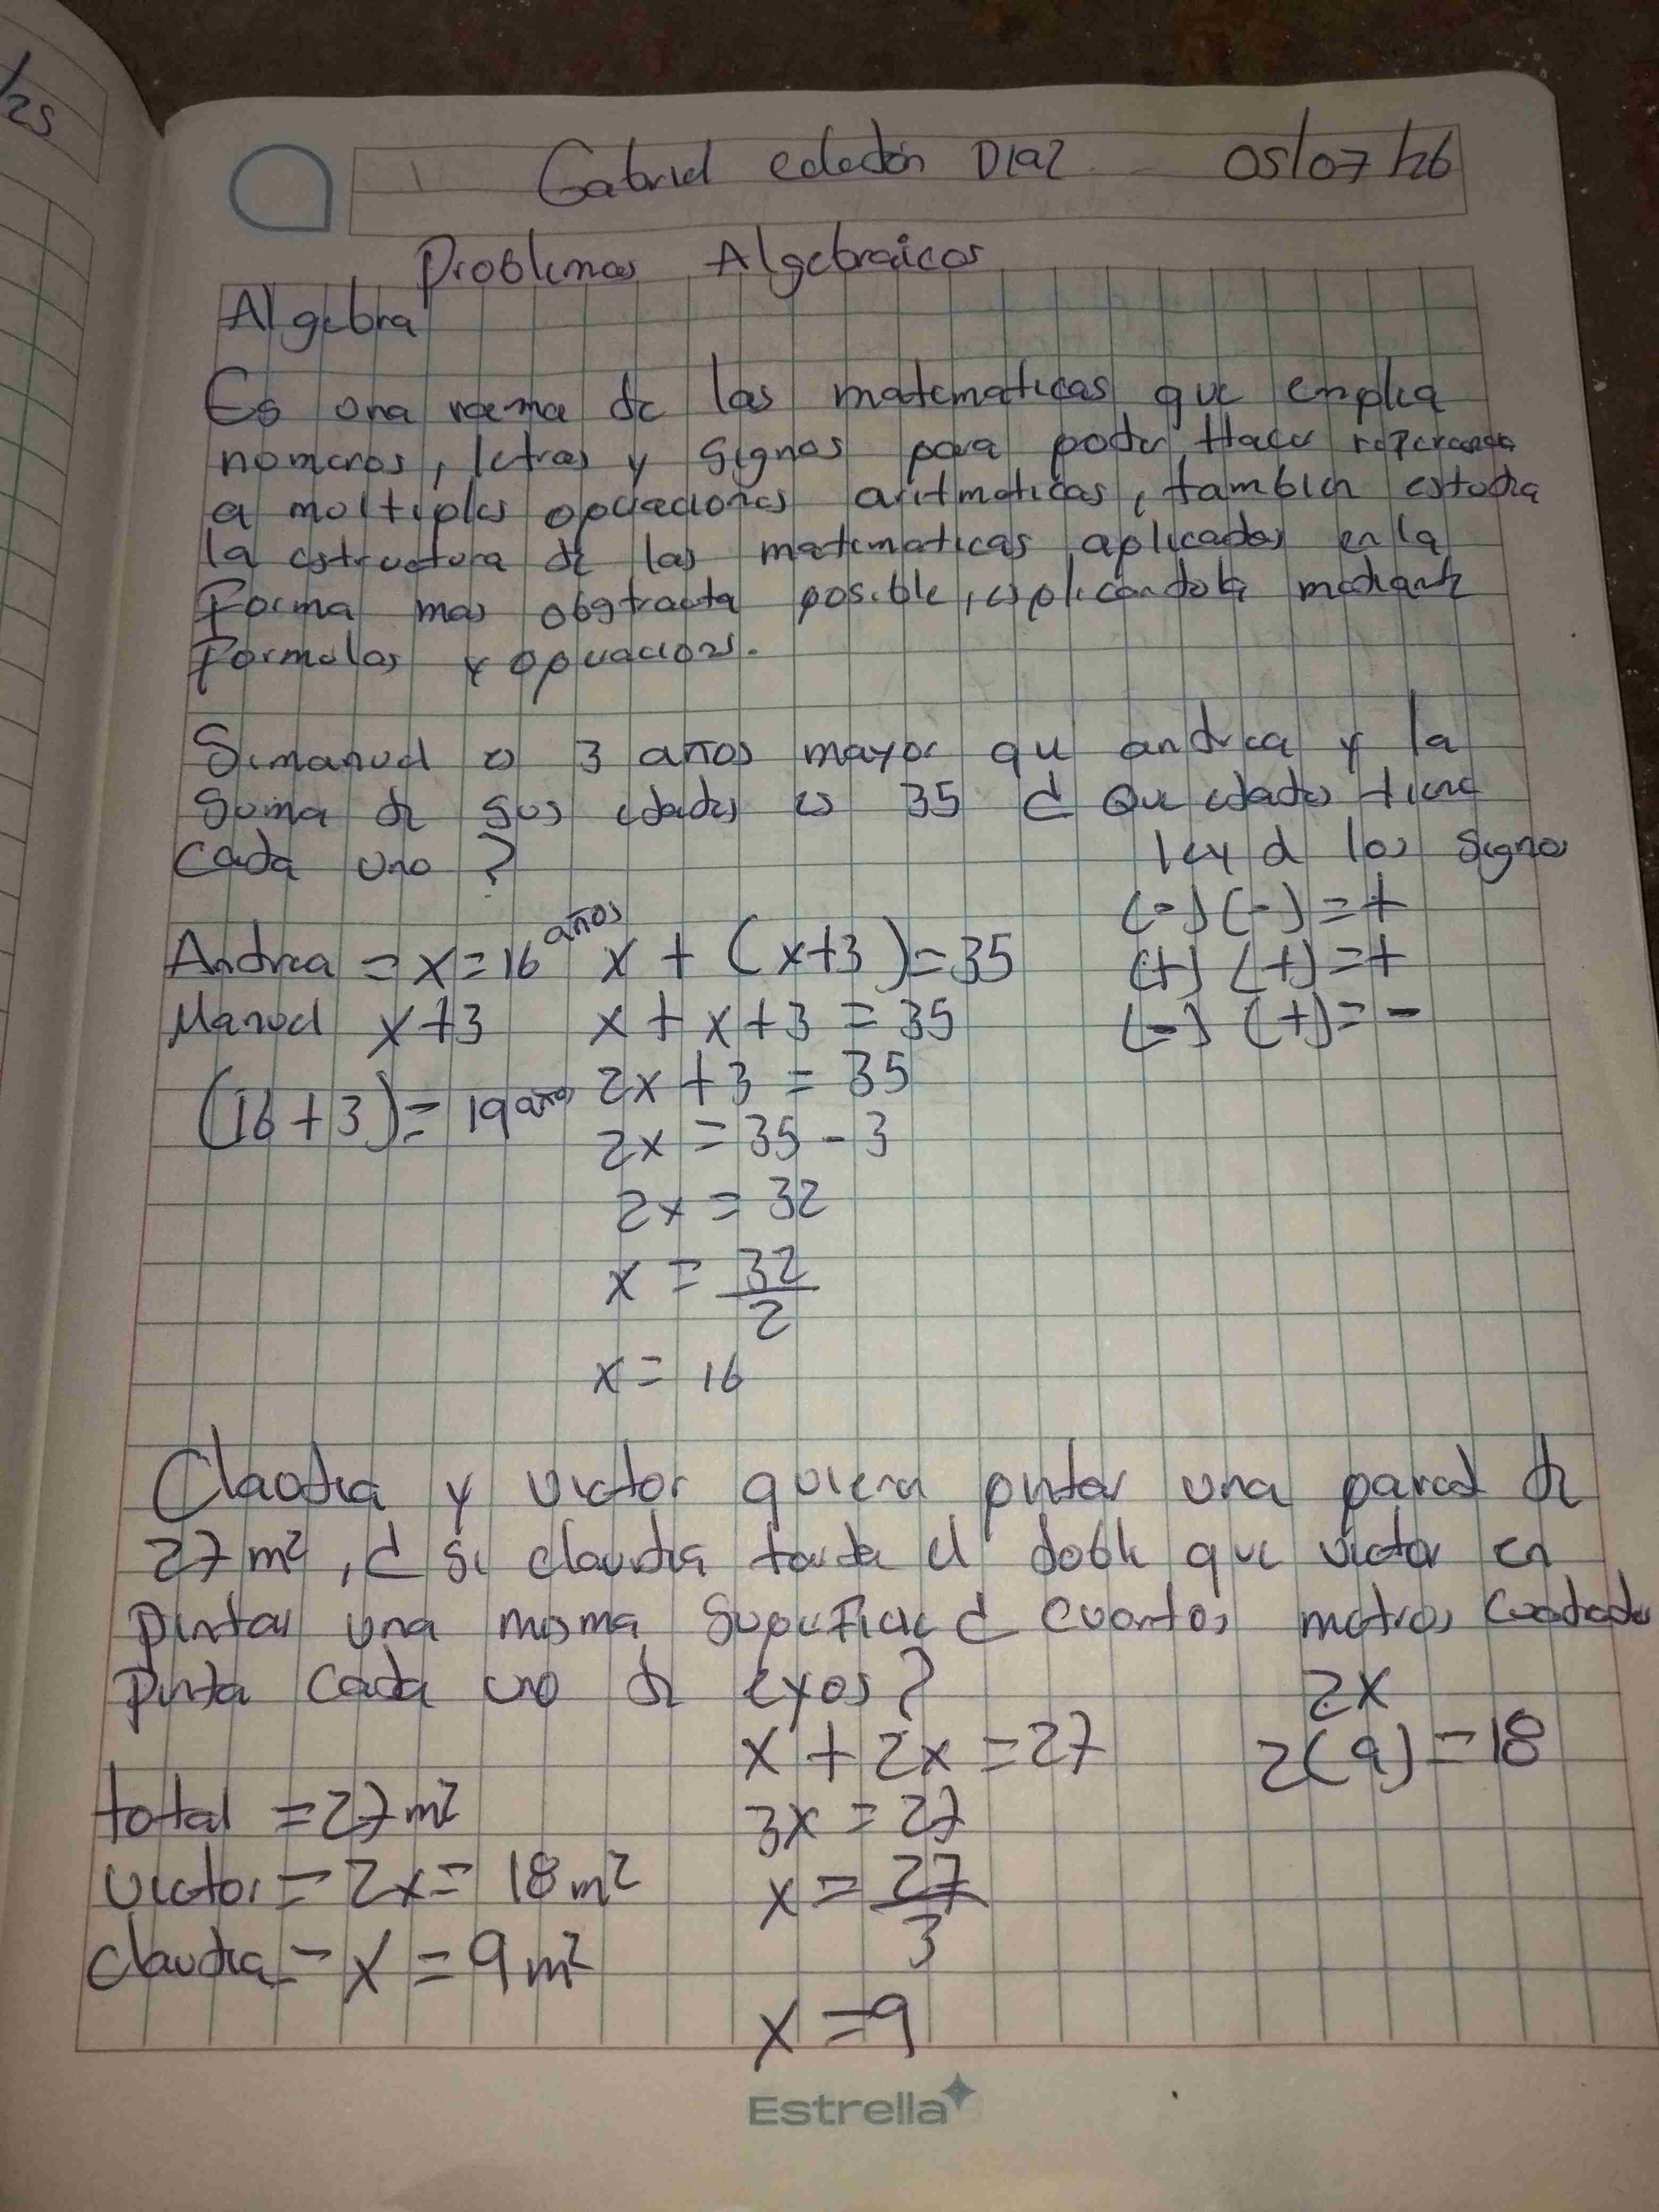 /25
Gabriel  Diaz 05/07/26
Problemas Algebraicos
Algebra
Es una rama de las matematicas que emplea
numeros, letras y signos para poder Hacer referencia
a multiples operaciones aritmeticas, tambien estudia
la estructura de las matematicas aplicadas en la
Forma mas obstracta posible, esplicandola mediante
formulas y operaciones.
Si manuel es 3 años mayor que andrea y la
suma de sus edades es 35 ¿ Que edades tiene
Cada uno ?
ley d los signos
(-) (-) = +
Andrea = x = 16 años x + (x+3) = 35 (+) (+) = +
Manuel x+3 x + x + 3 = 35 (-) (+) = -
(16 + 3) = 19 años 2x + 3 = 35
2x = 35 - 3
2x = 32
x = 32/2
x = 16
Claudia y victor quieren pintar una pared de
27 m², ¿ si claudia tarda el doble que victor en
pintar una misma superficie ¿ cuantos metros cuadrados
pinta cada uno de eyos ?
2x
x + 2x = 27 2(9) = 18
total = 27 m² 3x = 27
victor = 2x = 18 m² x = 27/3
claudia = x = 9 m²
x = 9
Estrella